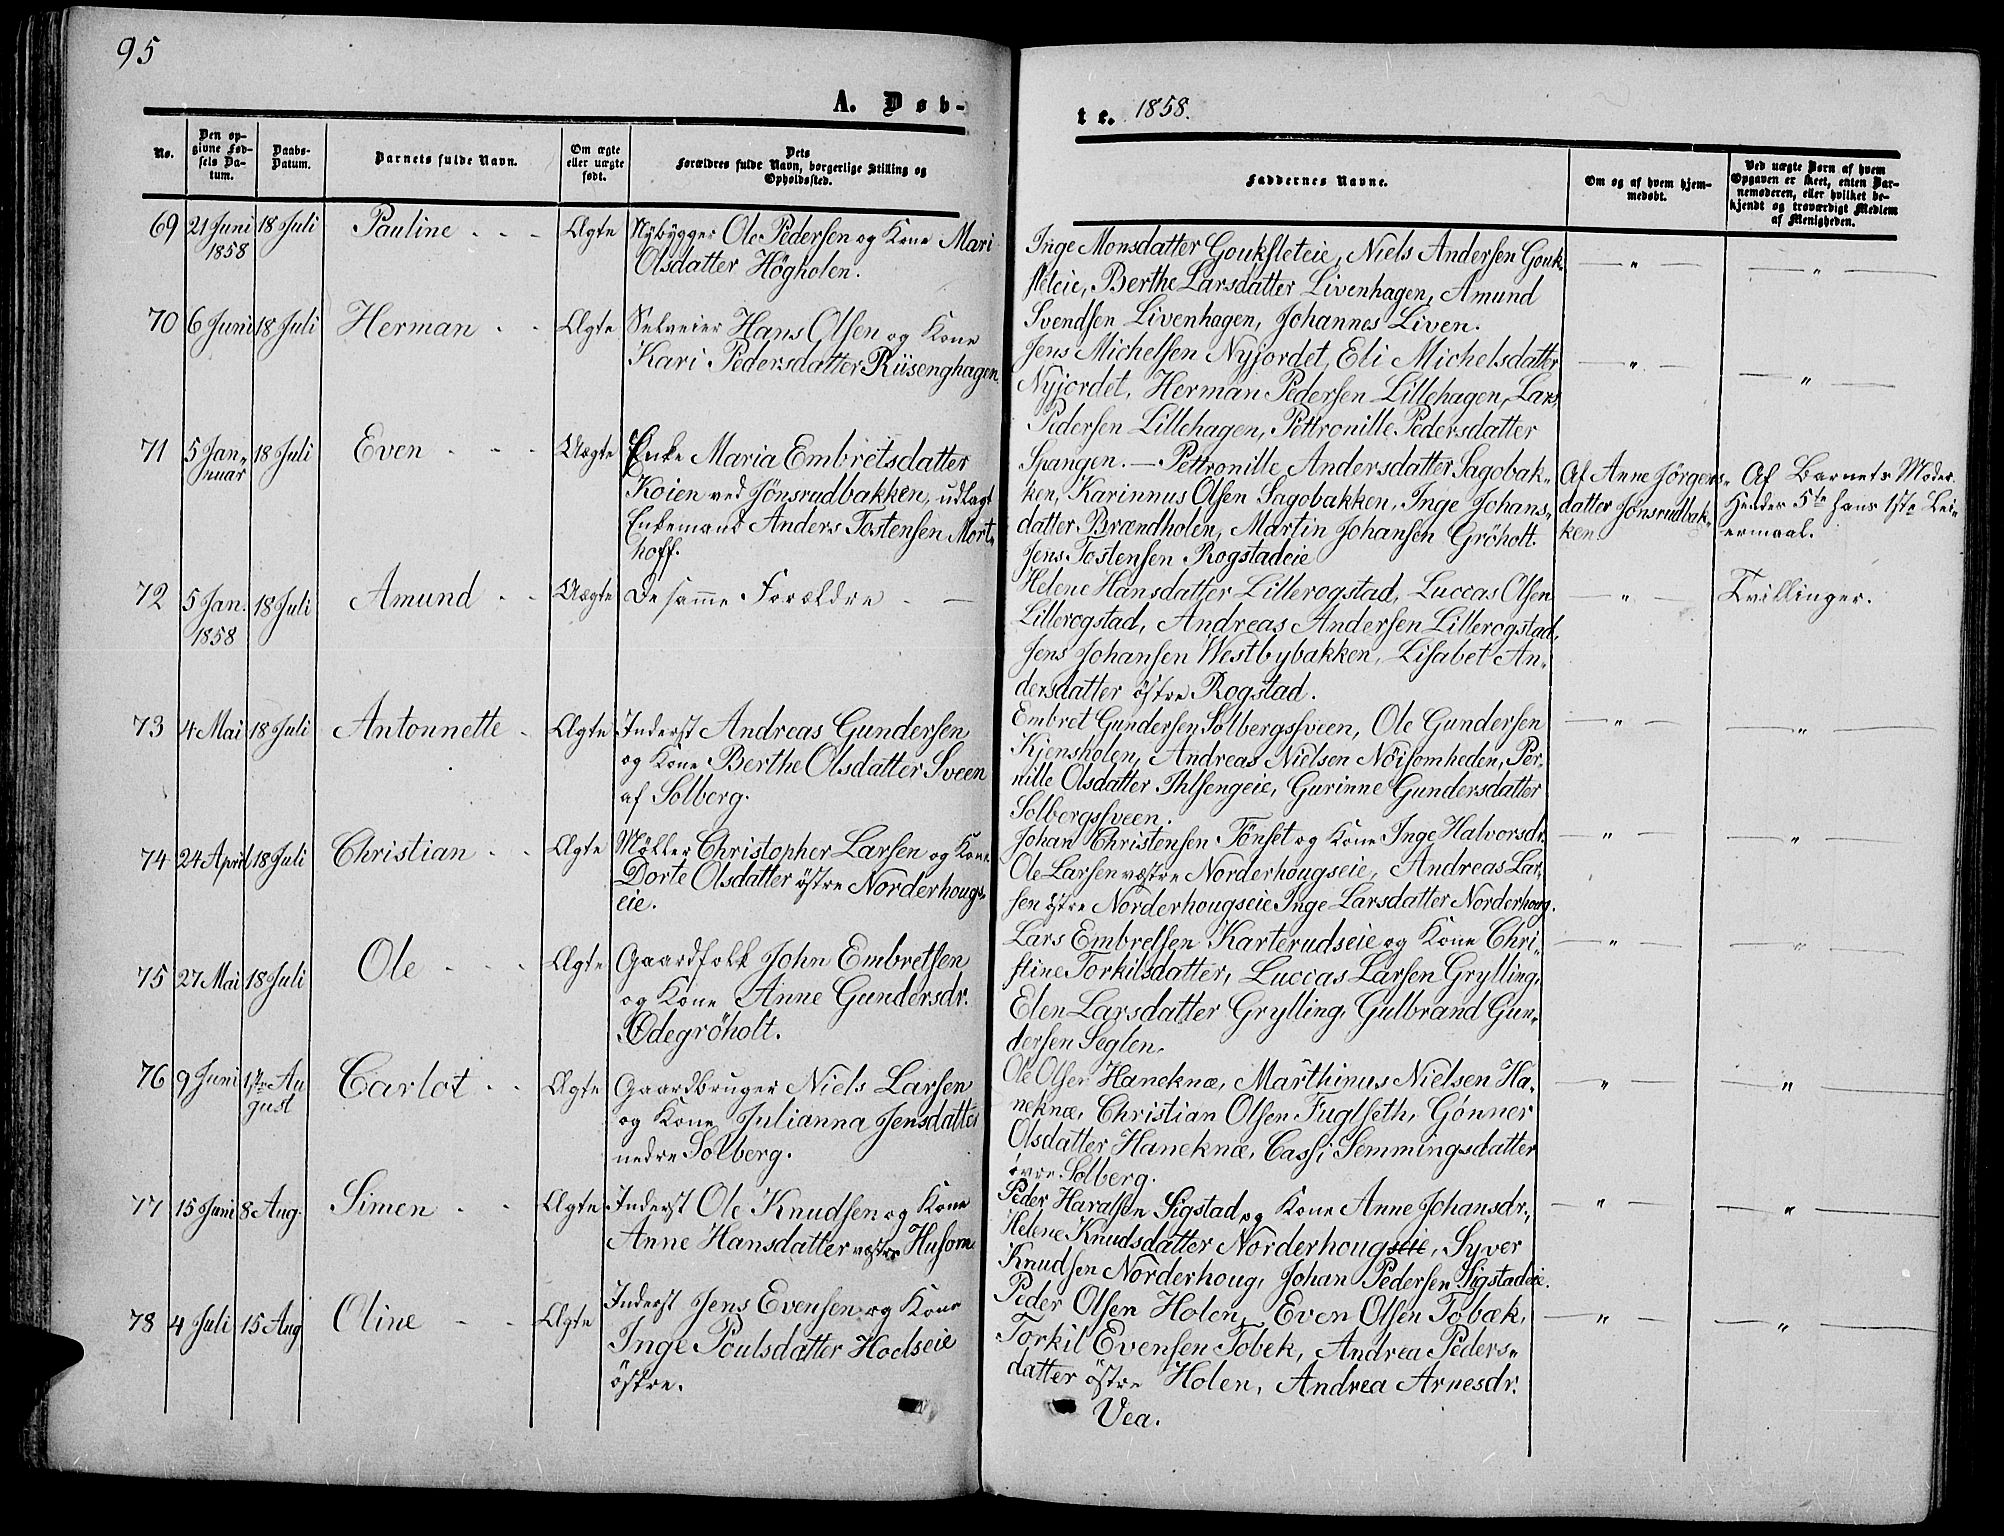 95
A. Døb-
te. 1858.
No.
Den op-
givne Fød-
sels Da-
tum.
Daabs-
Datum.
Barnets fulde Navn.
Om ægte
eller uægte
født.
Dets
Forældres fulde Navn, borgerlige Stilling og
Opholdssted.
Faddernes Navne.
Om og af hvem hjem-
medøbt.
Ved uægte Børn af hvem
Opgaven er skeet, enten Bar-
nemoderen, eller hvilket be-
kjendt og troværdigt Medlem
af Menigheden.
69 21 Juni 1858 18 Juli Pauline - - - Ægte Nybygger Ole Pedersen og Kone Mari
Olsdatter Högholen.
Inge Monsdatter Goukfleteie, Niels Andersen Gouk-
fleteie, Berthe Larsdatter Livenhagen, Amund
Svendsen Livenhagen, Johannes Liven.
— " — — " —
70 6 Juni 18 Juli Herman - - Ægte Selveier Hans Olsen og Kone
Kari Pedersdatter Riisenghagen.
Jens Michelsen Nyjordet, Eli Michelsdatter
Nyjordet, Herman Pedersen Lillehagen, Lars
Pedersen Lillehagen, Pettronille Pedersdatter
Spangen. —
— " — — " —
71 5 Jan-
nuar 18 Juli Even - - - Uægte Enke Maria Embretsdatter
Koien ved Jønsrudbakken, udlagt
Enkemand Anders Tostensen Mort-
hoff.
Pettronille Andersdatter Sagobak-
ken, Karinnus Olsen Sagobakken, Inge Johans-
datter Brændholen, Martin Johansen Gröholt.
Jens Tostensen Rogstadeie
Af Anne Jörgens-
datter Jönsrudbak-
ken.
Af Barnets Moder.
Hendes 5te hans 1ste Lei-
ermaal.
72 5 Jan. 1858 18 Juli Amund - - Uægte De samme Forældre - —
Helene Hansdatter Lillerogstad, Luccas Olsen
Lillerogstad, Andreas Andersen Lillerogstad,
Jens Johansen Westbybakken, Lisabet An-
dersdatter östre Rogstad.
— " — Tvillinger.
73 4 Mai 18 Juli Antonnette - Ægte Inderst Andreas Gundersen
og Kone Berthe Olsdatter Sveen
af Solberg.
Embret Gundersen Solbergssveen, Ole Gundersen
Kjensholen, Andreas Nielsen Nöisomheden, Per-
nille Olsdatter Ihlsengeie, Gurinne Gundersdatter
Solbergsveen.
— " — — " —
74 24 April 18 Juli Christian - - Ægte Möller Christopher Larsen og Kone
Dorte Olsdatter östre Norderhougs-
eie.
Johan Christensen Tönset og Kone Inge Halvorsdr.
Ole Larsen væstre Norderhougseie, Andreas Lar-
sen östre Norderhougseie Inge Larsdatter Norderhoug.
— " — — " —
75 27 Mai 18 Juli Ole - - - Ægte Gaardfolk John Embretsen
og Kone Anne Gundersdr.
Ødegröholt.
Lars Embretsen Karterudseie og Kone Chri-
stine Torkilsdatter, Luccas Larsen Grylling,
Elen Larsdatter Grylling, Gulbrand Gun-
dersen Seglen.
— " — — " —
76 9 Juni 1ste Au
gust Carlot - - Ægte Gaardbruger Niels Larsen
og Kone Julianna Jensdatter
nedre Solberg.
Ole Olsen Haneknæ, Marthinus Nielsen Ha-
neknæ, Christian Olsen Fuglseth, Gönner
Olsdatter Haneknæ, Cassi Semmingsdatter
övre Solberg.
" — — " —
77 15 Juni 8 Aug. Simen - - Ægte Inderst Ole Knudsen og Kone
Anne Hansdatter væstre Husom
Peder Haralsen Sigstad og Kone Anne Johansdr.,
Helene Knudsdatter Norderhougseie, Syver
Knudsen Norderhoug, Johan Pedersen Sigstadeie.
— " — — " —
78 4 Juli 15 Aug Oline - - Ægte Inderst Jens Evensen og Kone
Inge Poulsdatter Hoelseie
östre.
Peder Olsen Holen, Even Olsen Tobæk,
Torkil Evensen Tobek, Andrea Peders-
datter östre Holen, Andrea Arnesdr.
Vea.
— " — — " —